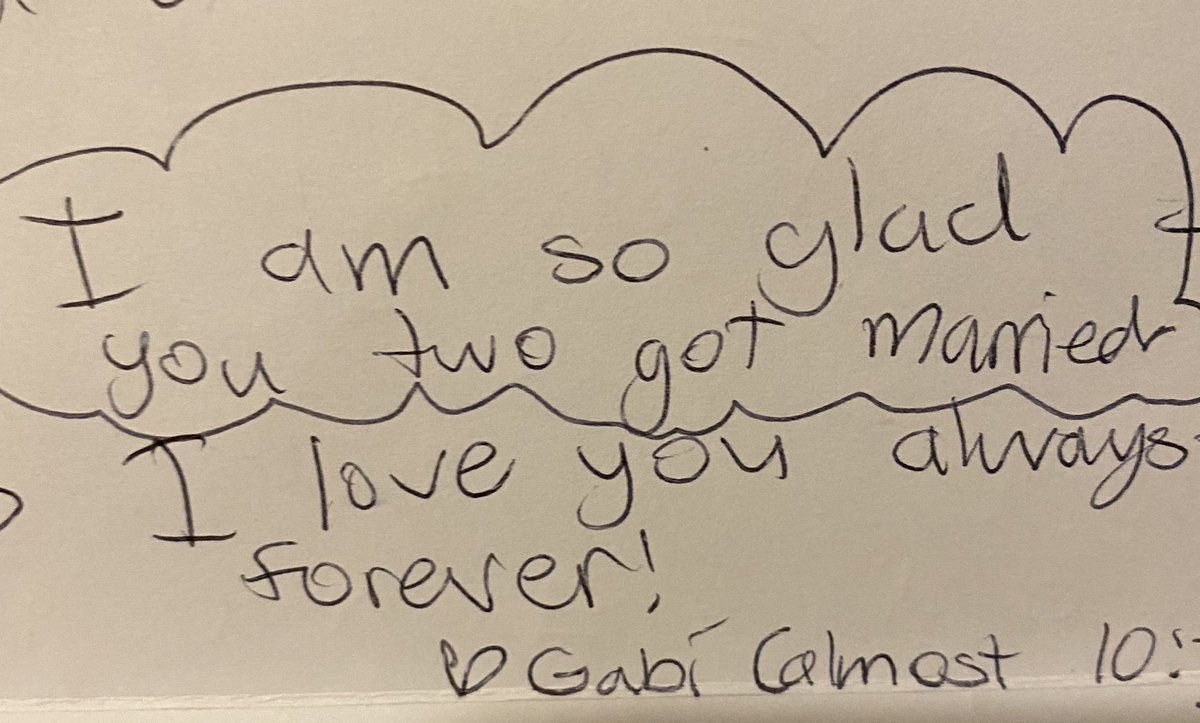 I am so glad
you two got married
I love you always
forever!
♡ Gabi (almost 10